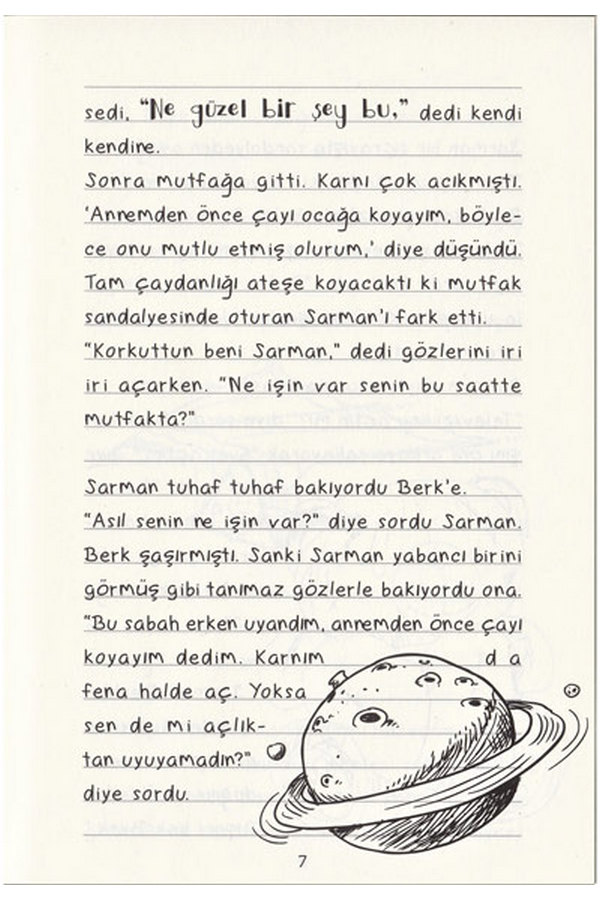 sedi, “Ne güzel bir şey bu,” dedi kendi
kendine.
Sonra mutfağa gitti. Karnı çok acıkmıştı.
‘Annemden önce çayı ocağa koyayım, böyle-
ce onu mutlu etmiş olurum,’ diye düşündü.
Tam çaydanlığı ateşe koyacaktı ki mutfak
sandalyesinde oturan Sarman’ı fark etti.
“Korkuttun beni Sarman,” dedi gözlerini iri
iri açarken. “Ne işin var senin bu saatte
mutfakta?”
Sarman tuhaf tuhaf bakıyordu Berk’e.
“Asıl senin ne işin var?” diye sordu Sarman.
Berk şaşırmıştı. Sanki Sarman yabancı birini
görmüş gibi tanımaz gözlerle bakıyordu ona.
“Bu sabah erken uyandım, annemden önce çayı
koyayım dedim. Karnım d a
fena halde aç. Yoksa
sen de mi açlık-
tan uyuyamadın?”
diye sordu.
7